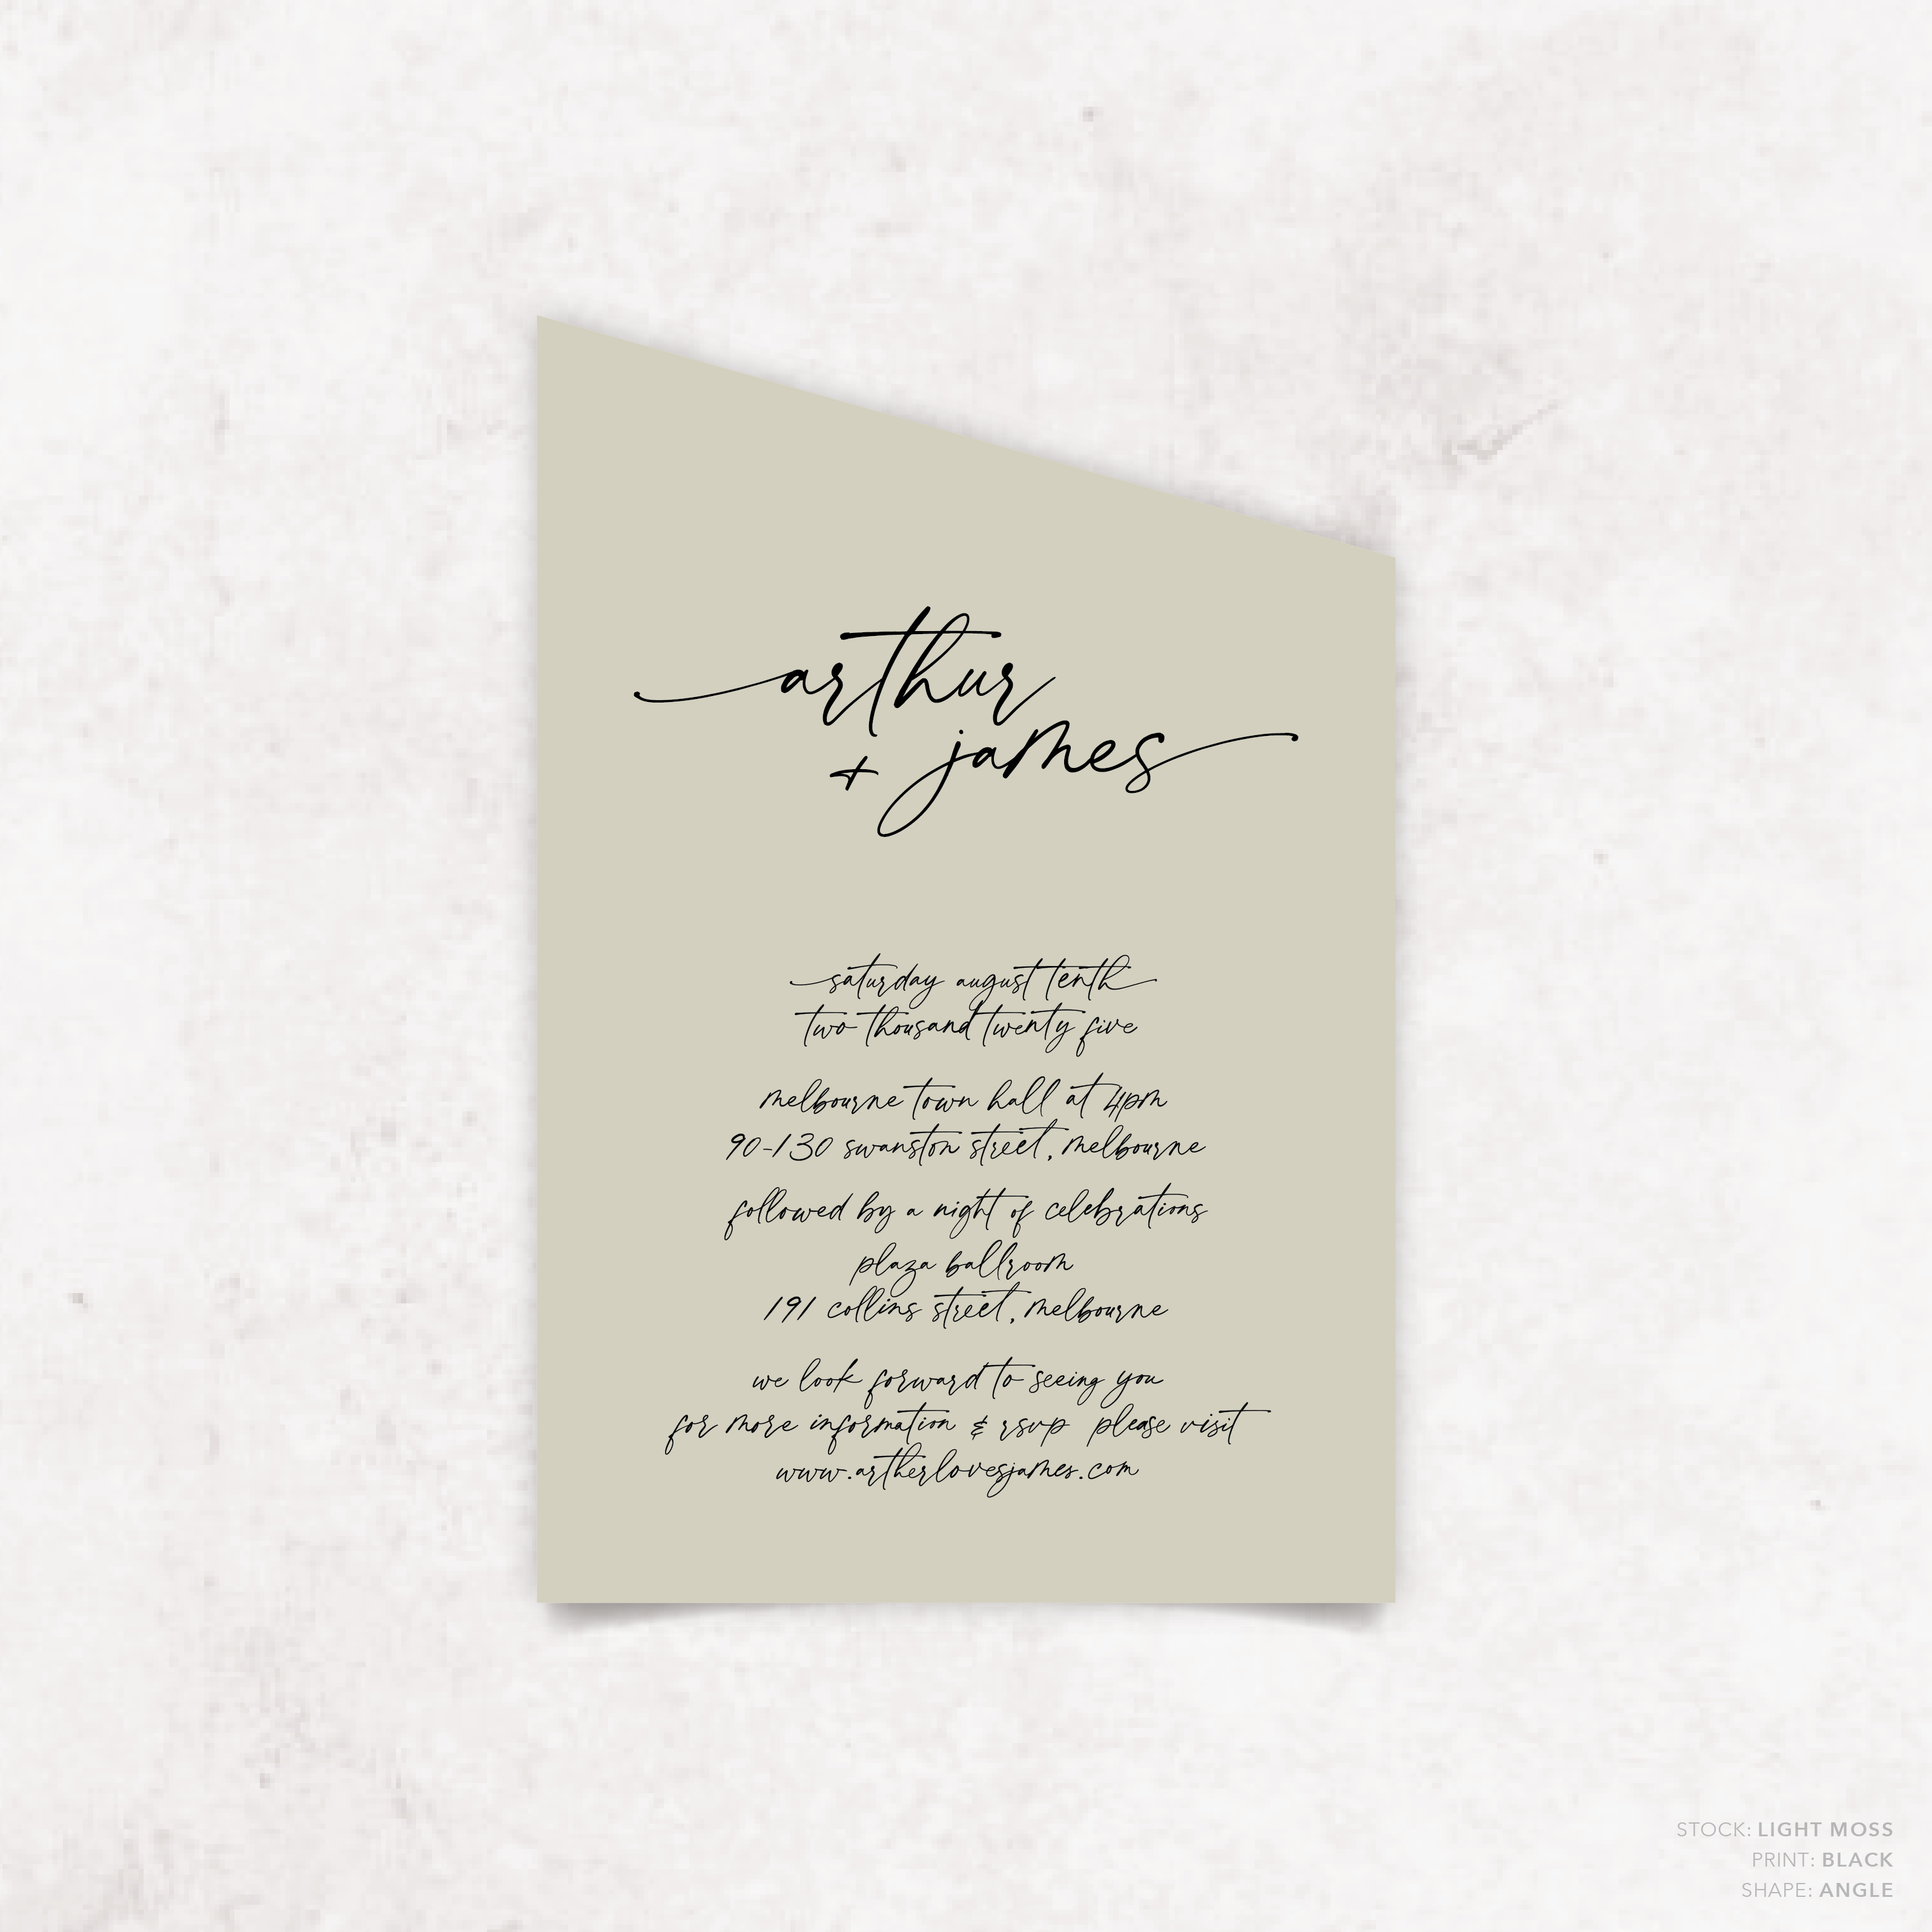 arthur
+ james
saturday august tenth
two thousand twenty five
melbourne town hall at 4pm
90-130 swanston street, melbourne
followed by a night of celebrations
plaza ballroom
191 collins street, melbourne
we look forward to seeing you
for more information & rsvp please visit
www.artherlovesjames.com
STOCK: LIGHT MOSS
PRINT: BLACK
SHAPE: ANGLE